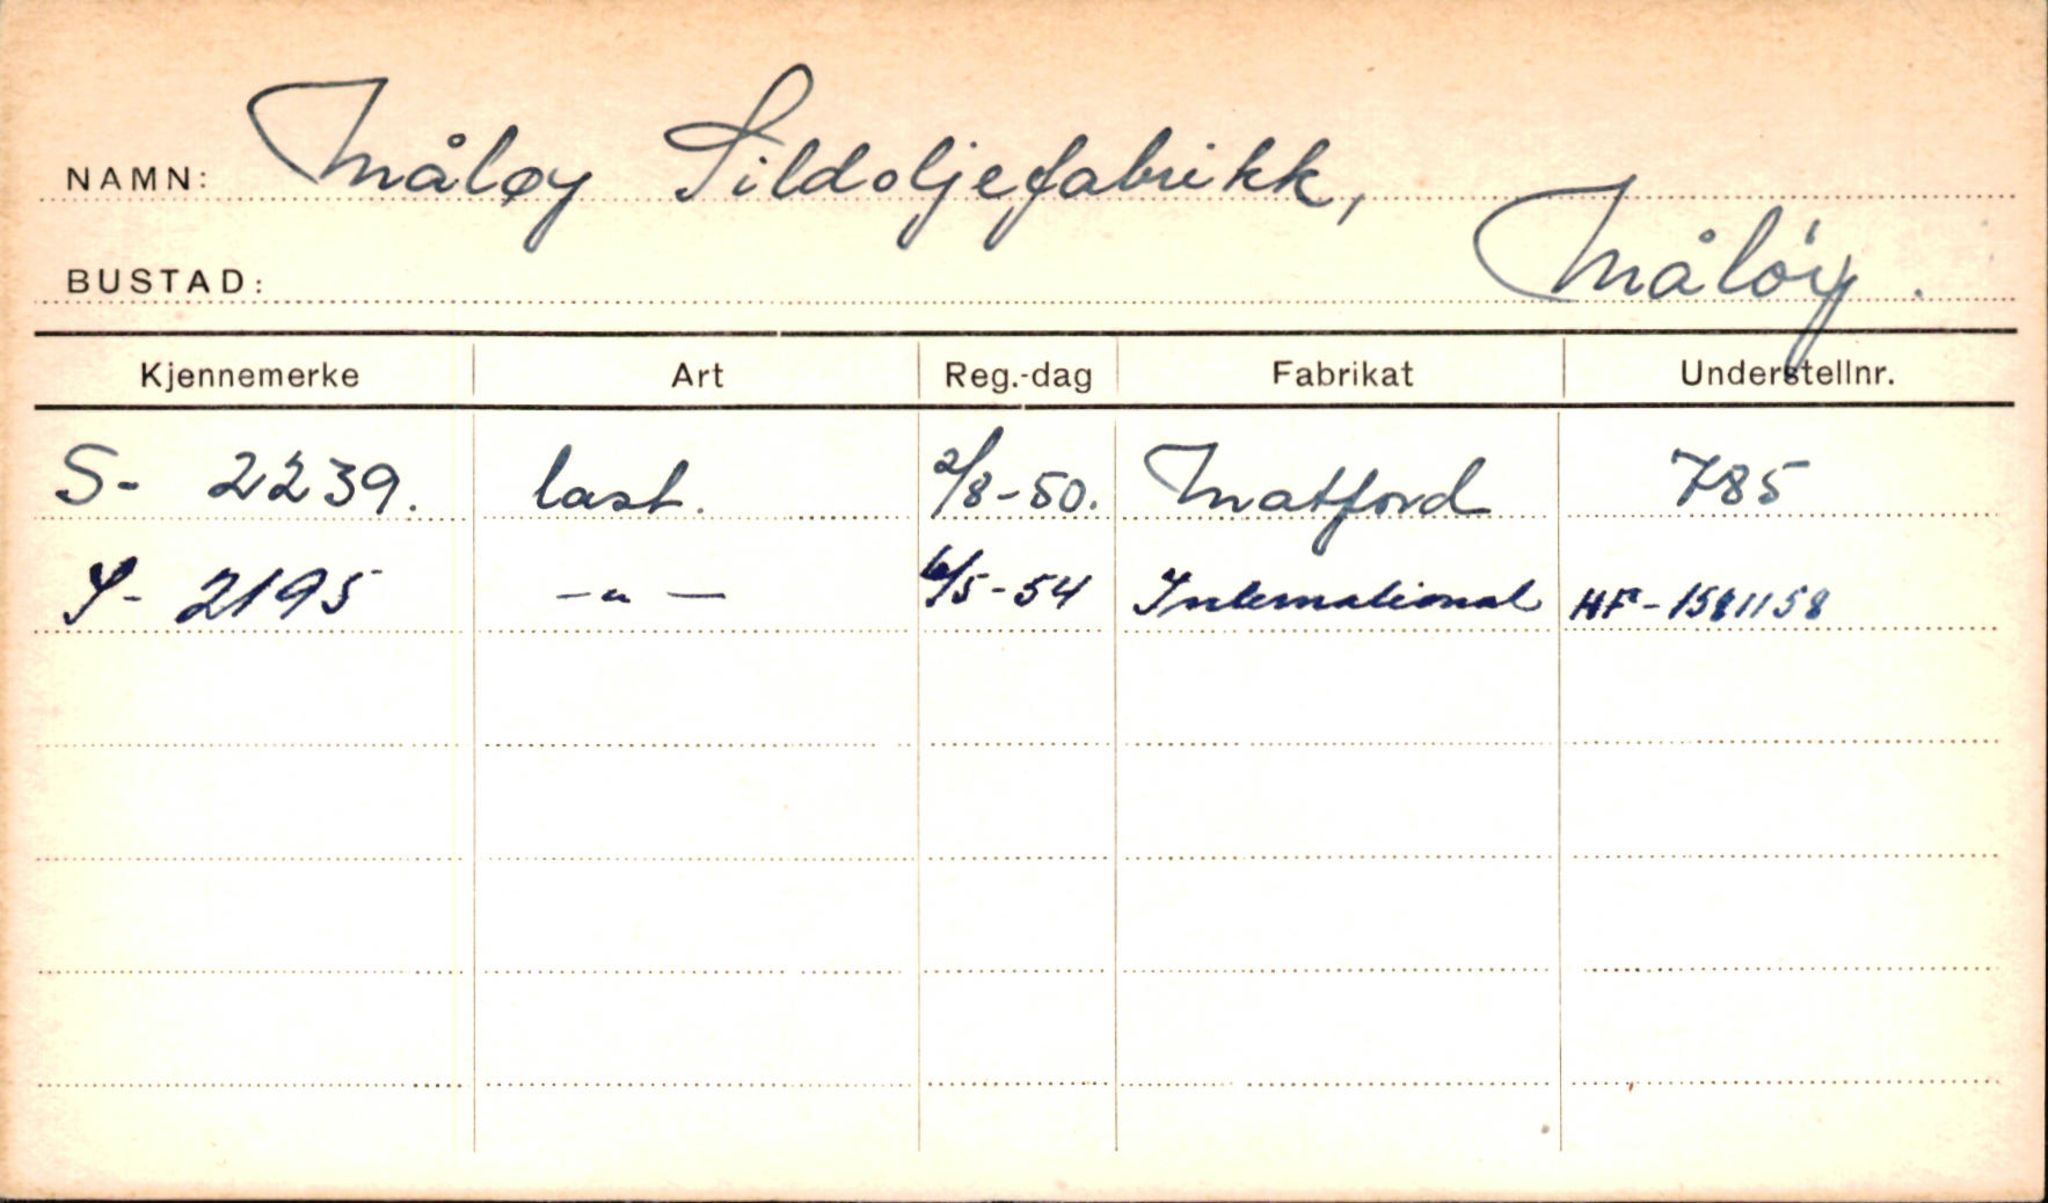 NAMN: Måløy Sildoljefabrikk,
BUSTAD: Måløy.
Kjennemerke Art Reg.-dag Fabrikat Understellnr.
S- 2239. last. 2/8-50. Matford 785
S- 2195 -"- 6/5-54 International HF-1581158